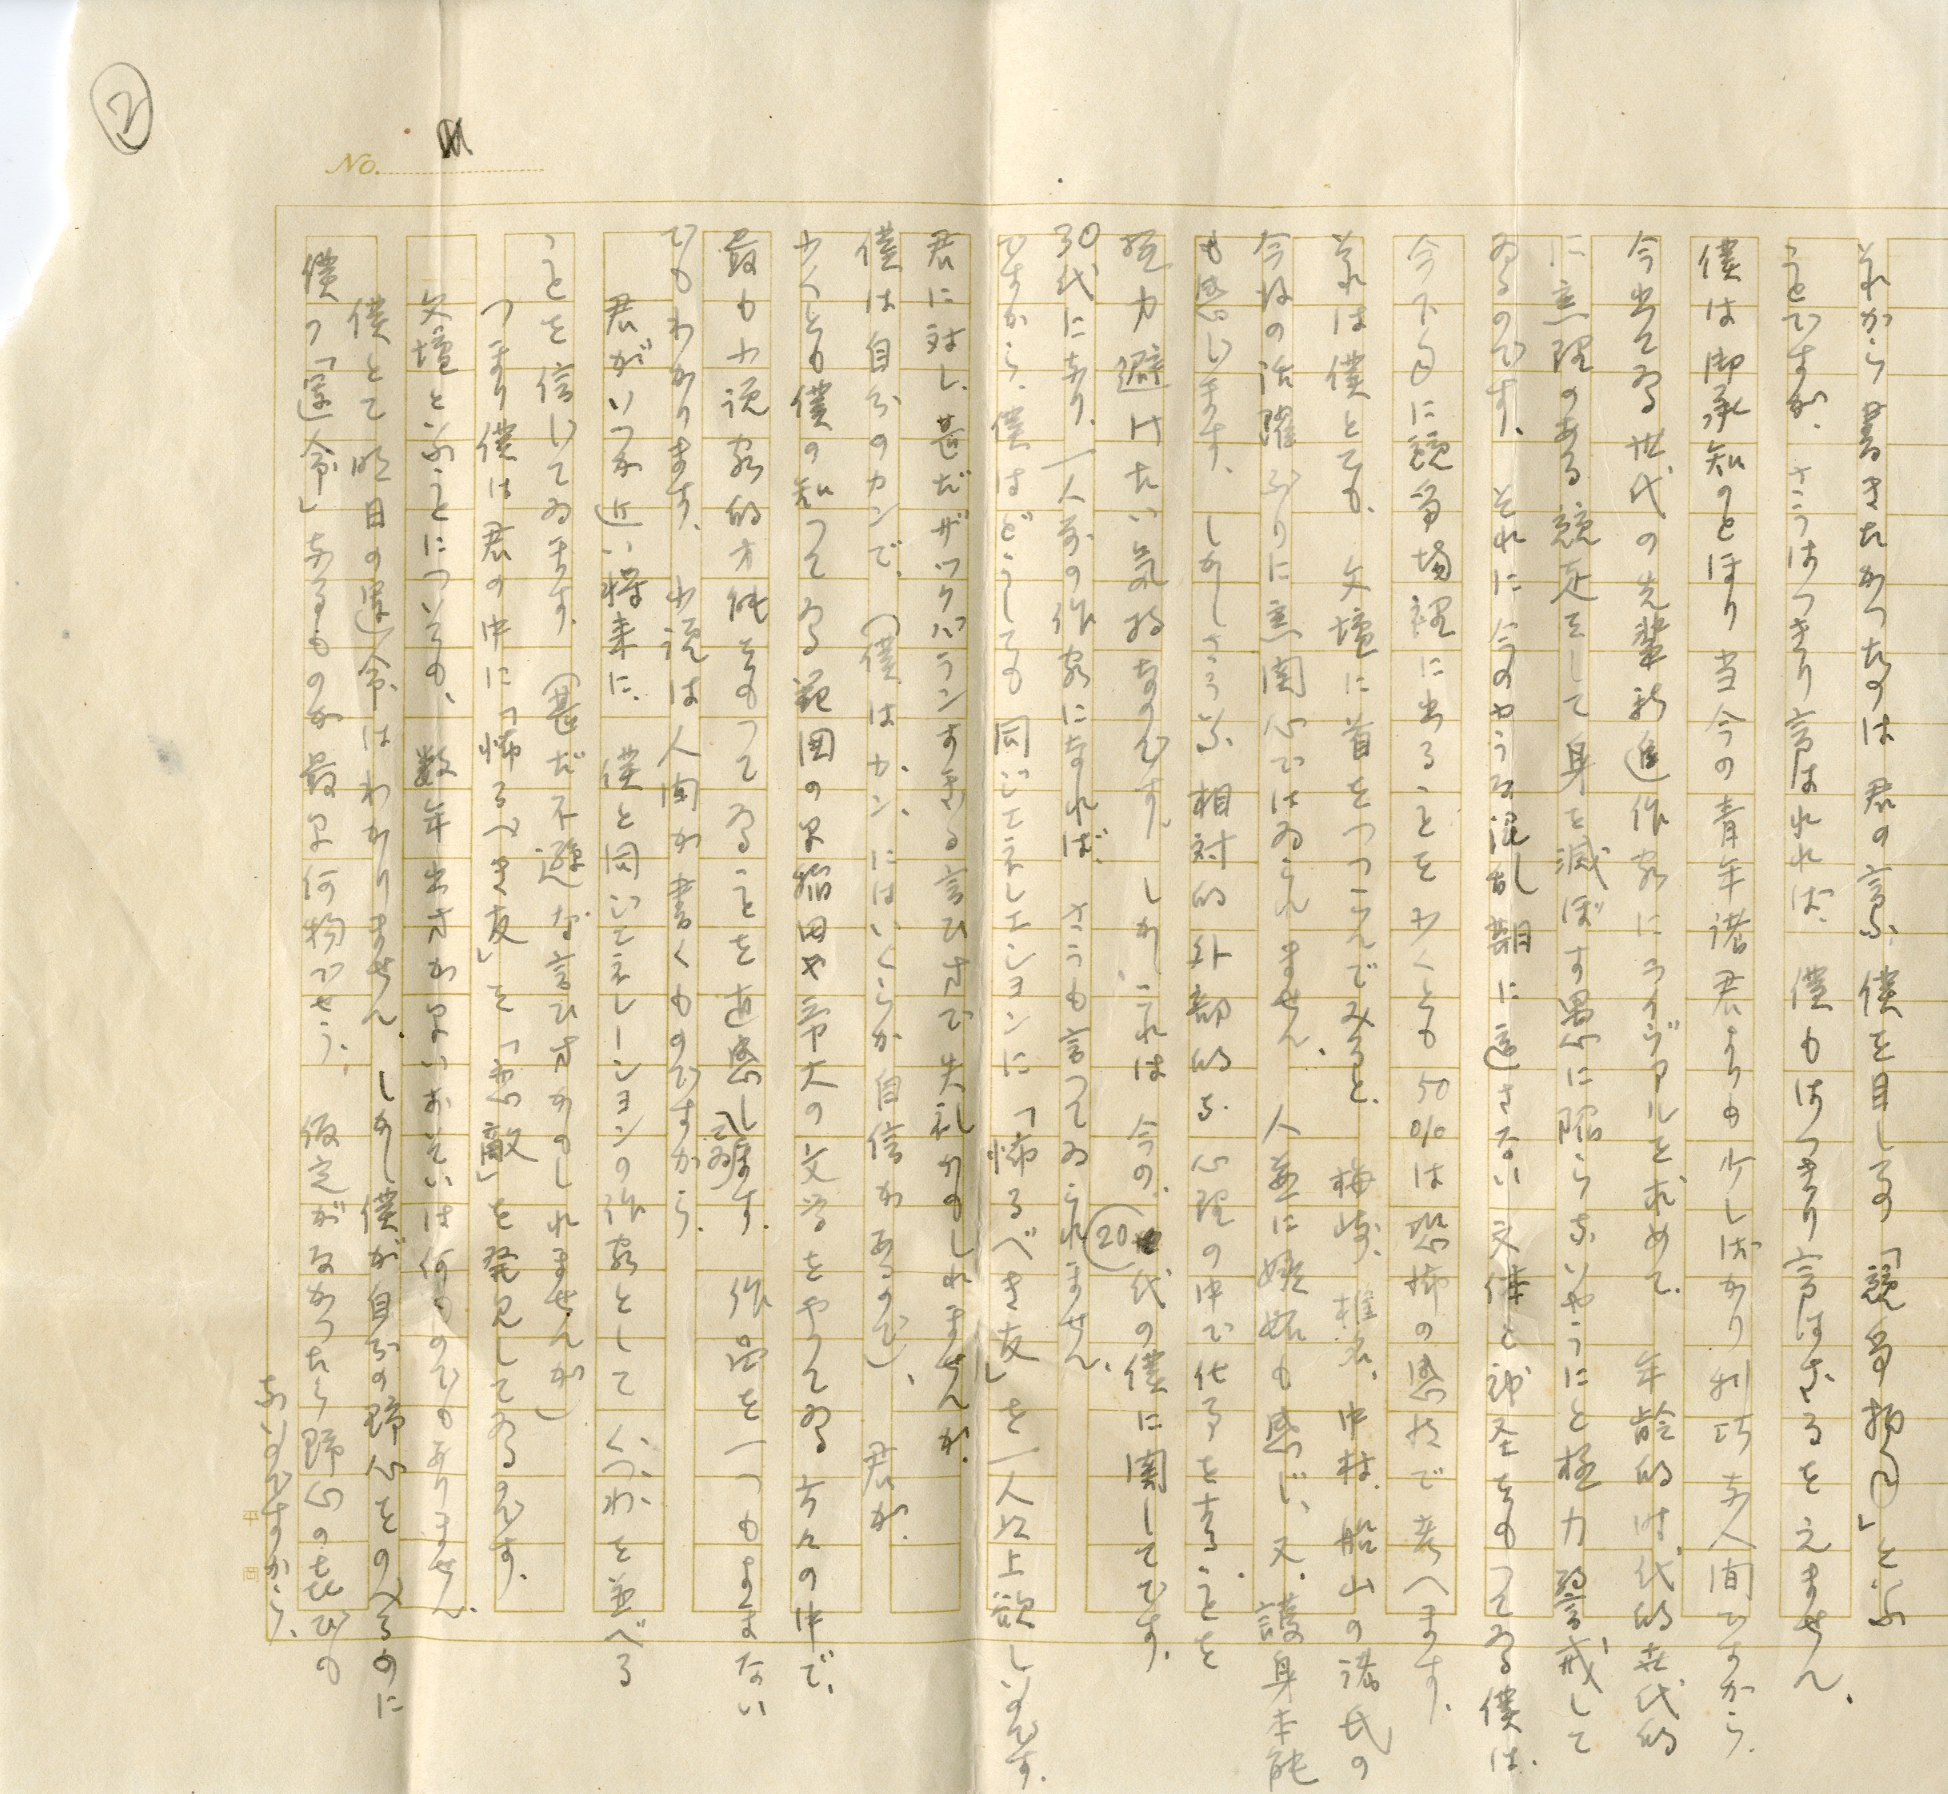 ②
No.
それから書きたかつたのは君の言ふ、僕を目しての「競争相手」といふ
ことですが、さうはつきり言はれれば、僕もはつきり言はざるをえません。
僕は御承知のとほり当今の青年諸君よりも少しばかり利巧な人間ですから、
今出てゐる世代の先輩新進作家にライヴァルを求めて、年齢的時代的世代的
に無理のある競走をして身を滅ぼす愚に陥らないやうにと極力警戒して
ゐるのです。それに今のやうな混乱期に適さない文体と神経をもつてゐる僕は、
今下手に競争場裡に出ることを少くとも50%は恐怖の感情で考へます。
それは僕とても、文壇に首をつつこんでみると、梅崎、椎名、中村、船山の諸氏の
今様の活躍ぶりに無関心ではゐられません。人並に嫉妬も感じ、又、護身本能
も感じます。しかしさういふ相対的外部的な心理の中で仕事をすることを
極力避けたい気持なのです。しかしこれは今の、20代の僕に関してです。
30代になり、一人前の作家になれば、さうも言つてゐられません。
ですから、僕はどうしても同じエネレエションに「怖るべき友」を一人以上欲しいのです。
君に対し、甚だザックバランすぎる言ひ方で失礼かもしれませんが、
僕は自分のカンで、(僕はカンにはいくらか自信があるので)、君が、
少くとも僕の知つてゐる範囲の早稲田や帝大の文学をやつてゐる方々の中で、
最も小説家的才能をもつてゐることを直感してゐます。作品を一つもよまない
でもわかります。小説は人間が書くものですから。
君がいつか近い将来に、僕と同じエネレーションの作家としてくつわを並べる
ことを信じてゐます。(甚だ不遜な言ひ方かもしれませんが)
つまり僕は君の中に「怖るべき友」を「恋敵」を発見してゐるのです。
文壇といふことについても、数年出方が早いおそいは何ものでもありません。
僕とて明日の運命はわかりません。しかし僕が自分の野心をのべるのに
僕の「運命」なるものが最早何物でせう。仮定がなかつたら野心の喜びも
ないのですから。